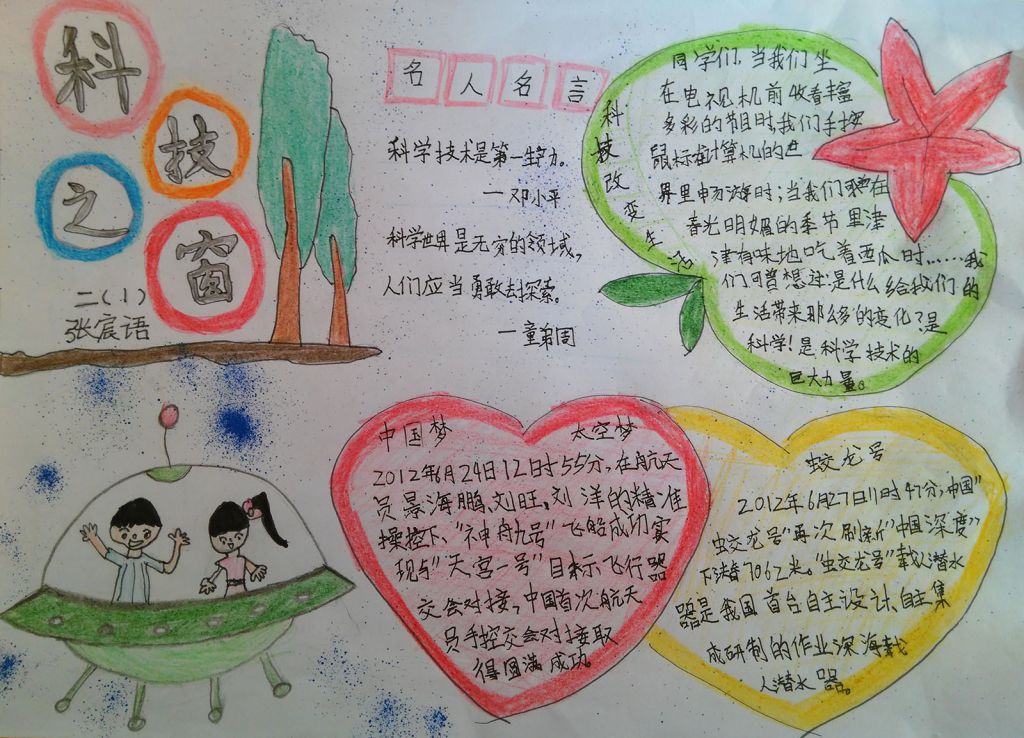 科
技
之
窗
二(1)
张宸语
名人名言
科学技术是第一生产力。
—邓小平
科学世界是无穷的领域,
人们应当勇敢去探索。
—童第周
科技改变生活
同学们,当我们坐
在电视机前收看丰富
多彩的节目时,我们手握
鼠标在计算机的世
界里畅游时;当我们在
春光明媚的季节里津
津有味地吃着西瓜时……我
们可曾想过:是什么给我们的
生活带来那么多的变化?是
科学!是科学技术的
巨大力量。
中国梦 太空梦
2012年6月24日12时55分,在航天
员景海鹏,刘旺,刘洋的精准
操控下,"神舟九号"飞船成功实
现与"天宫一号"目标飞行器
交会对接,中国首次航天
员手控交会对接取
得圆满成功。
蛟龙号
2012年6月27日11时47分,中国"
蛟龙号"再次刷新"中国深度"
下潜7062米。"蛟龙号"载人潜水
器是我国首台自主设计、自主集
成研制的作业深海载
人潜水器。